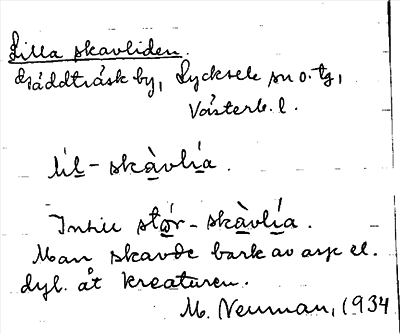 Lilla skavliden.
Gäddträsk by, Lycksele sn o. tg,
Västerb. l.
lìl-skàvlía.
Intill stór-skàvlía.
Man skavde bark av asp el.
dyl. åt kreaturen.
M. Neuman, 1934